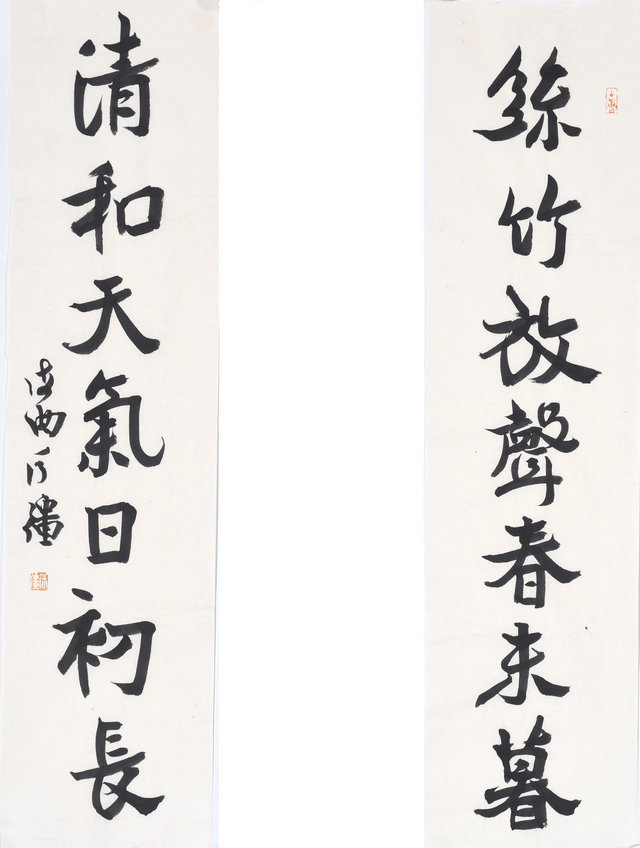 絲竹放聲春未暮
清和天氣日初長